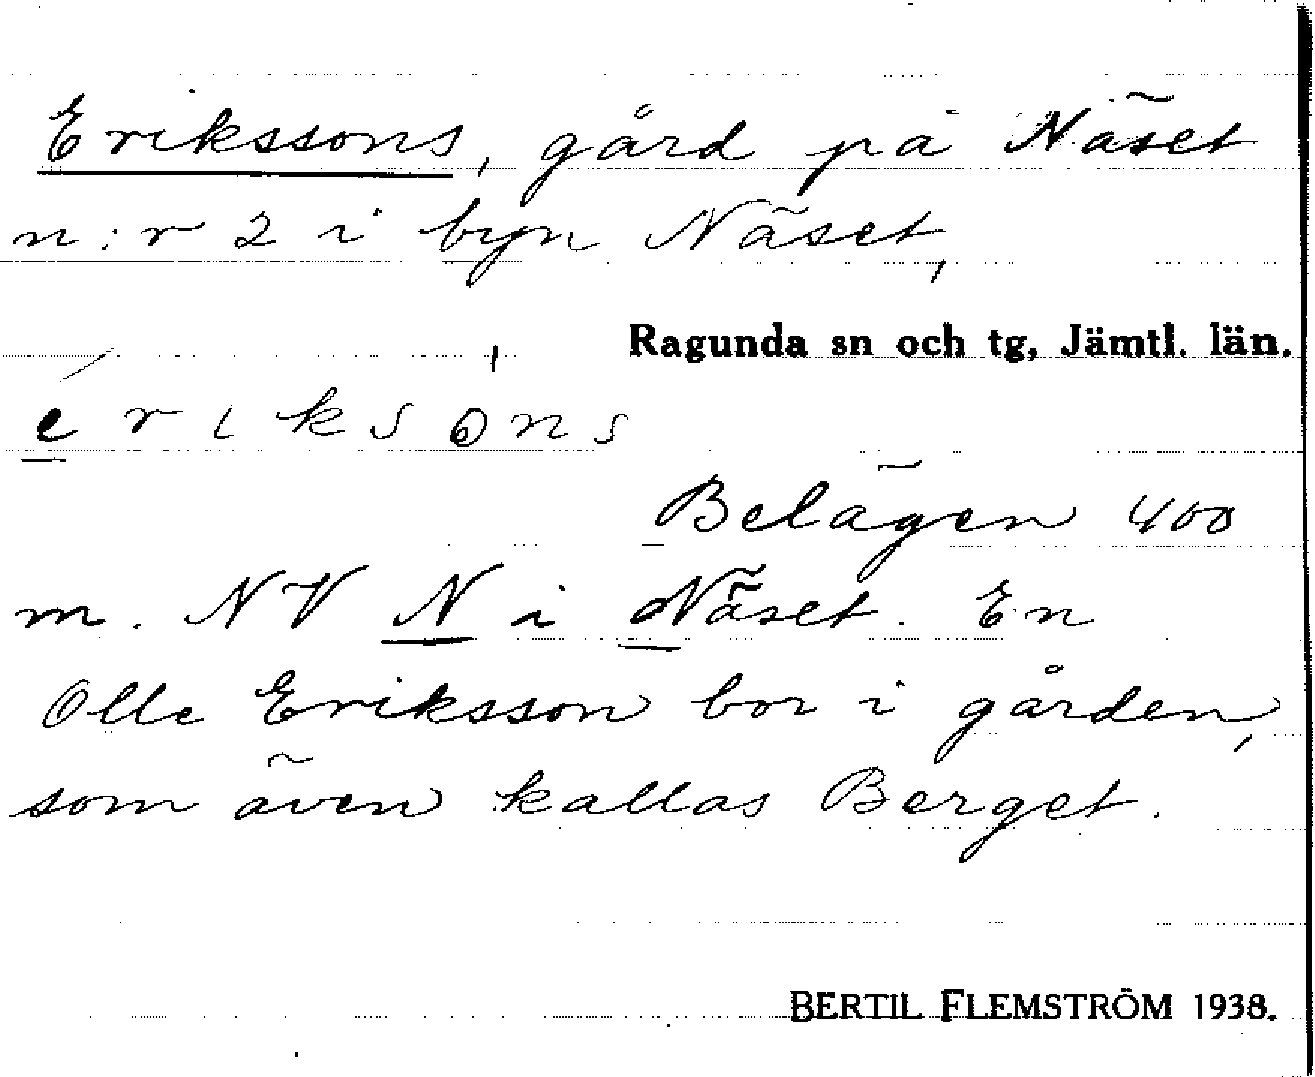 Erikssons, gård på Näset
n:r 2 i byn Näset,
Ragunda sn och tg, Jämtl. län.
é r ɩ k s ò n s
Belägen 400
m. NV N i Näset. En
Olle Eriksson bor i gården,
som även kallas Berget.
BERTIL FLEMSTRÖM 1938.